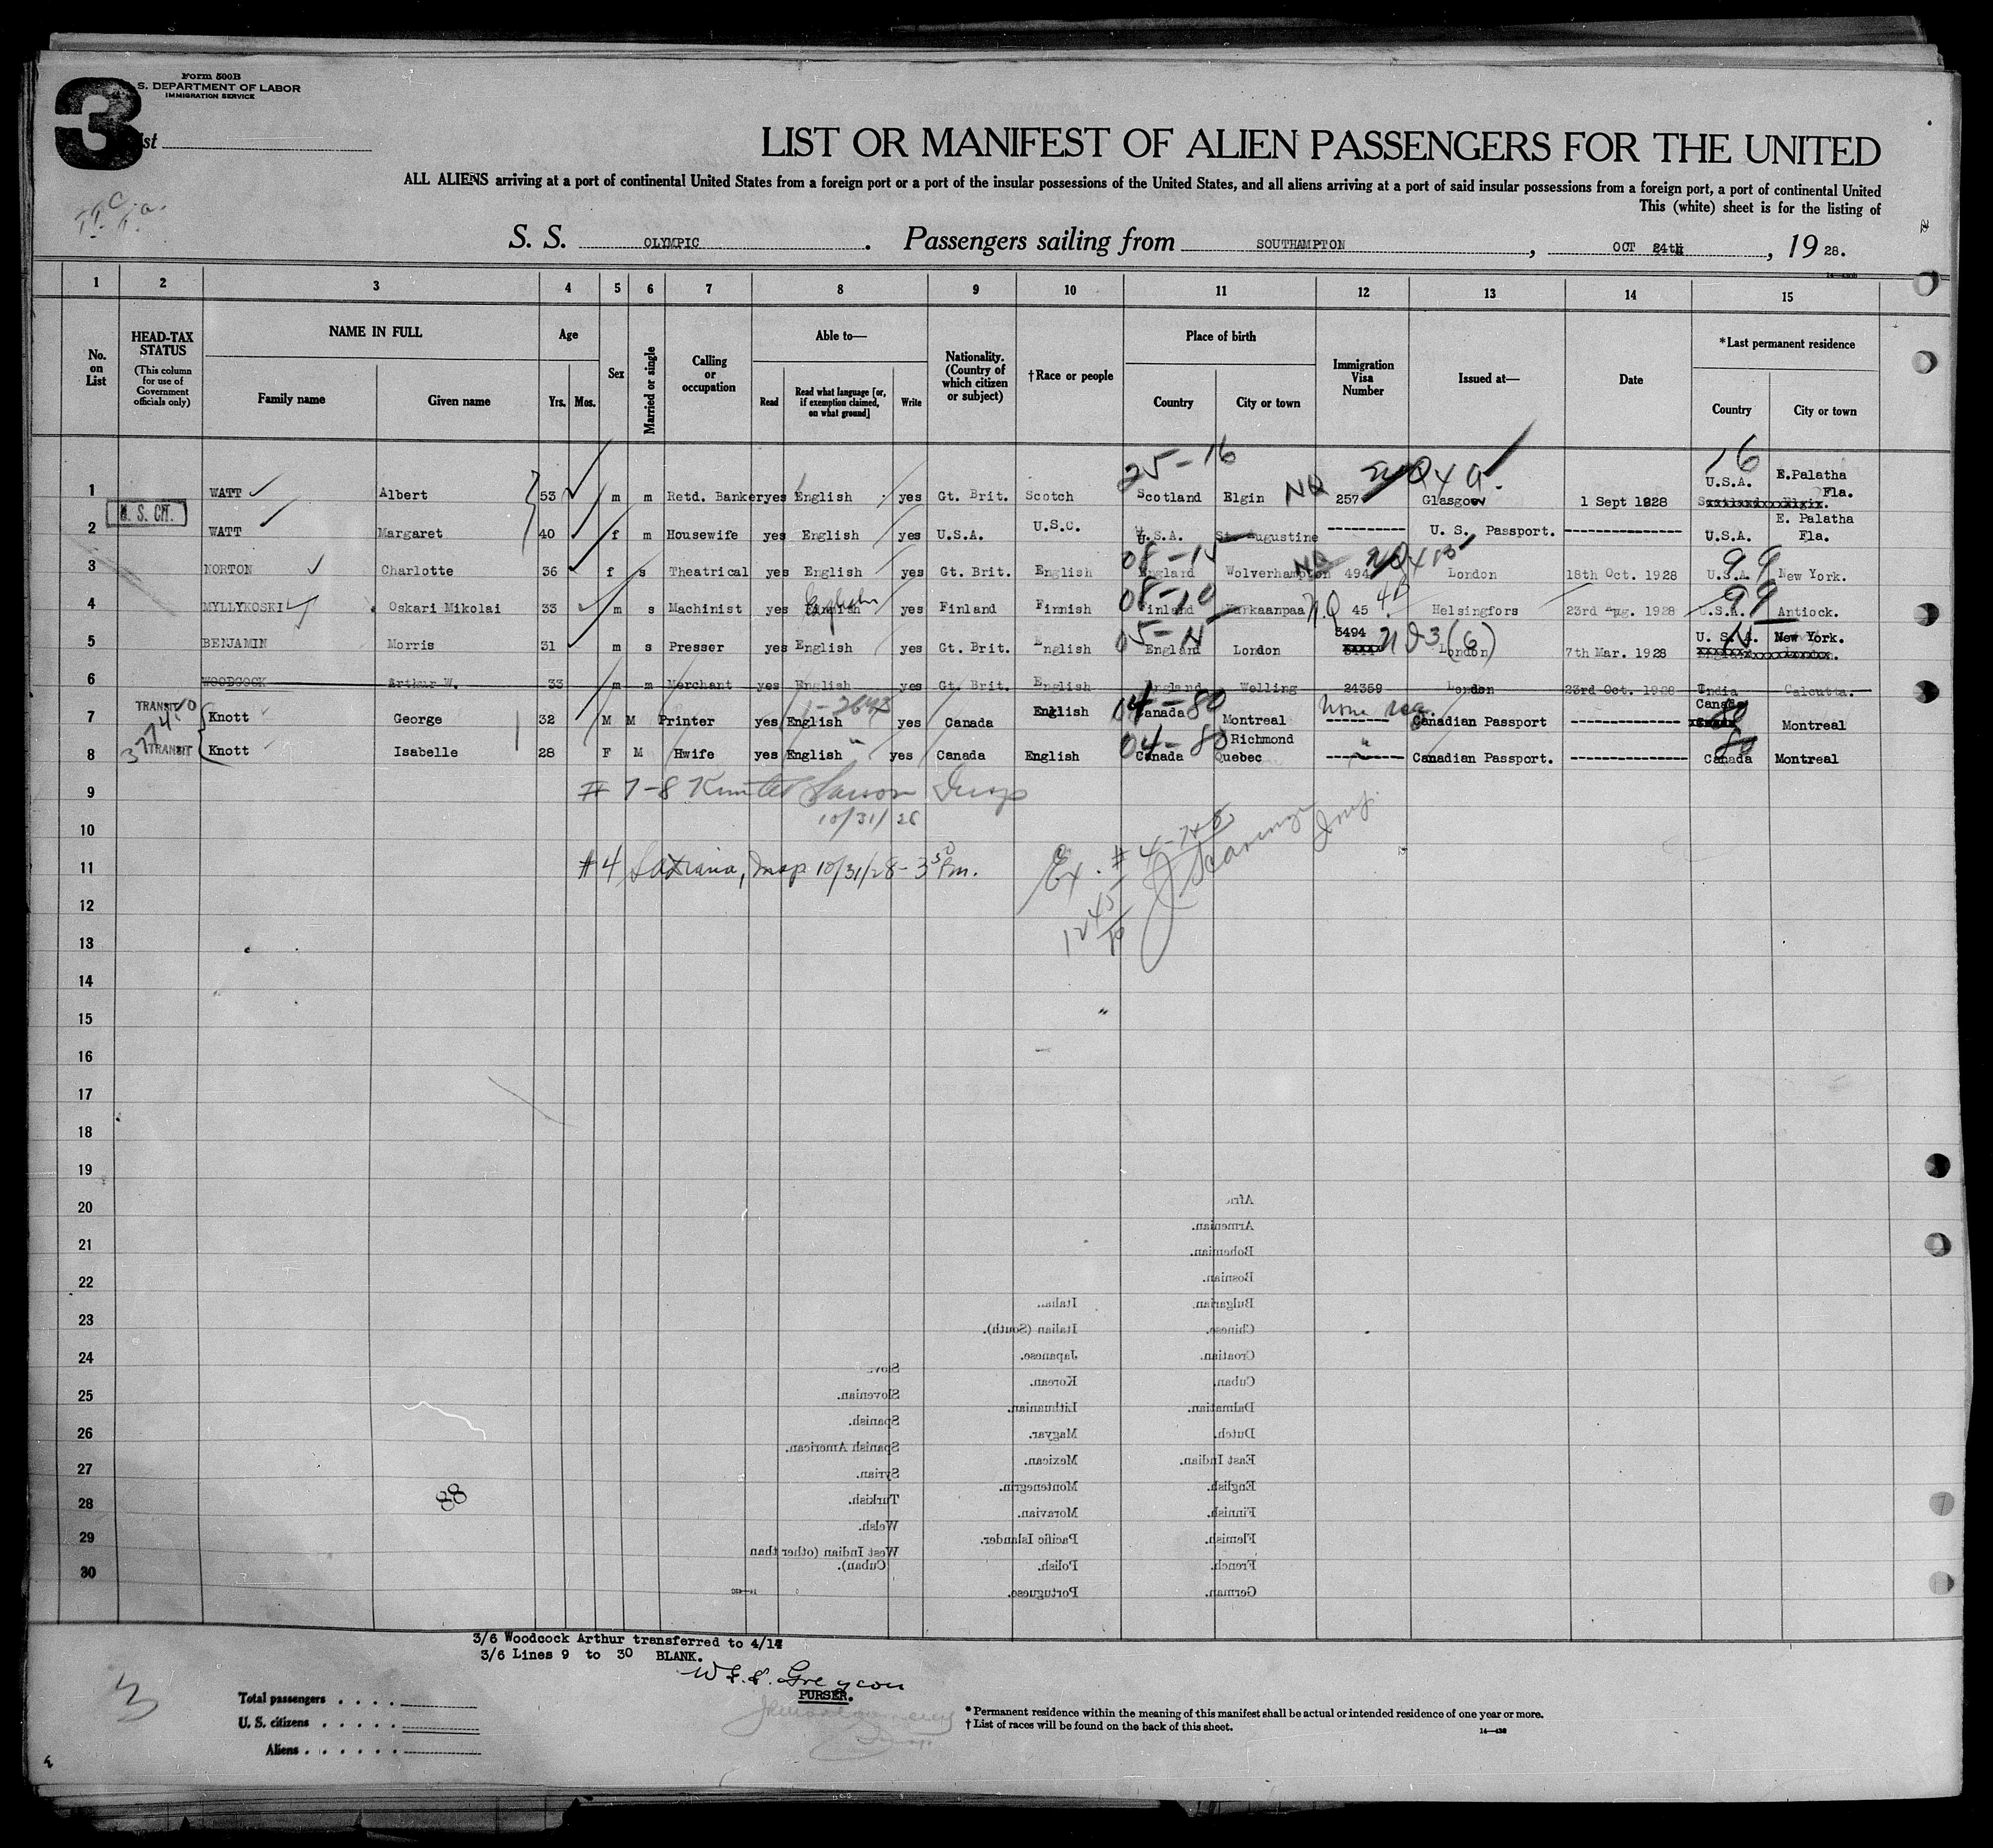 3
Form 500B
S. DEPARTMENT OF LABOR
IMMIGRATION SERVICE
ist
LIST OR MANIFEST OF ALIEN PASSENGERS FOR THE UNITED
ALL ALIENS arriving at a port of continental United States from a foreign port or a port of the insular possessions of the United States, and all aliens arriving at a port of said insular possessions from a foreign port, a port of continental United
This (white) sheet is for the listing of
S. S. OLYMPIC. Passengers sailing from SOUTHAMPTON, OCT 24th, 19 28.
1 2 3 4 5 6 7 8 9 10 11 12 13 14 15
No. on List
HEAD-TAX STATUS
(This column for use of Government officials only)
NAME IN FULL
Family name Given name
Age
Yrs. Mos.
Sex
Married or single
Calling or occupation
Able to—
Read
Read what language [or, if exemption claimed, on what ground]
Write
Nationality. (Country of which citizen or subject)
†Race or people
Place of birth
Country City or town
Immigration Visa Number
Issued at—
Date
*Last permanent residence
Country City or town
25-16
1 WATT Albert 53 m m Retd. Banker yes English yes Gt. Brit. Scotch Scotland Elgin NQ 257 Glasgow 1 Sept 1928 U.S.A. E.Palatha Fla.
U. S. CIT.
2 WATT Margaret 40 f m Housewife yes English yes U.S.A. U.S.C. U.S.A. St. Augustine ---------- U. S. Passport. --------------- U.S.A. E. Palatha Fla.
08-15
99
3 NORTON Charlotte 36 f s Theatrical yes English yes Gt. Brit. English England Wolverhampton 494 London 18th Oct. 1928 U.S.A. New York.
English
08-10
99
4 MYLLYKOSKI Oskari Mikolai 33 m s Machinist yes Finnish yes Finland Finnish Finland Karkaanpaa 45 Helsingfors 23rd Aug. 1928 U.S.A. Antiock.
05-15
5 BENJAMIN Morris 31 m s Presser yes English yes Gt. Brit. English England London 5494 London 7th Mar. 1928 U. S. A. New York.
6 WOODCOCK Arthur W. 33 m m Merchant yes English yes Gt. Brit. English England Welling 24359 London 23rd Oct. 1928 India Calcutta.
04-80
None req.
7 TRANSIT Knott George 32 M M Printer yes English yes Canada English Canada Montreal ---------- Canadian Passport --------------- Canada Montreal
04-80
80
8 TRANSIT Knott Isabelle 28 F M Hwife yes English yes Canada English Canada Richmond Quebec ---------- Canadian Passport. --------------- Canada Montreal
9
10/31/28
10
11
#4 Insp 10/31/28 - 3 50 Pm.
12
13
14
15
16
17
18
19
20
21
22
23
24
25
26
27
28
29
30
88
Afri
Armenian.
Bohemian.
Bosnian.
Bulgarian.
Chinese.
Croatian.
Cuban.
Dalmatian.
Dutch.
East Indian.
English.
Finnish.
Flemish.
French.
German.
Italian
Italian (South).
Japanese.
Korean.
Lithuanian.
Magyar.
Mexican.
Montenegrin.
Moravian.
Pacific Islander.
Polish.
Portuguese.
Slovenian.
Spanish.
Spanish American.
Syrian.
Turkish.
Welsh.
West Indian (other than
Cuban).
3/6 Woodcock Arthur transferred to 4/14
3/6 Lines 9 to 30 BLANK.
PURSER.
3
Total passengers . . . .
U. S. citizens . . . . .
Aliens . . . . . .
* Permanent residence within the meaning of this manifest shall be actual or intended residence of one year or more.
† List of races will be found on the back of this sheet.
14—436